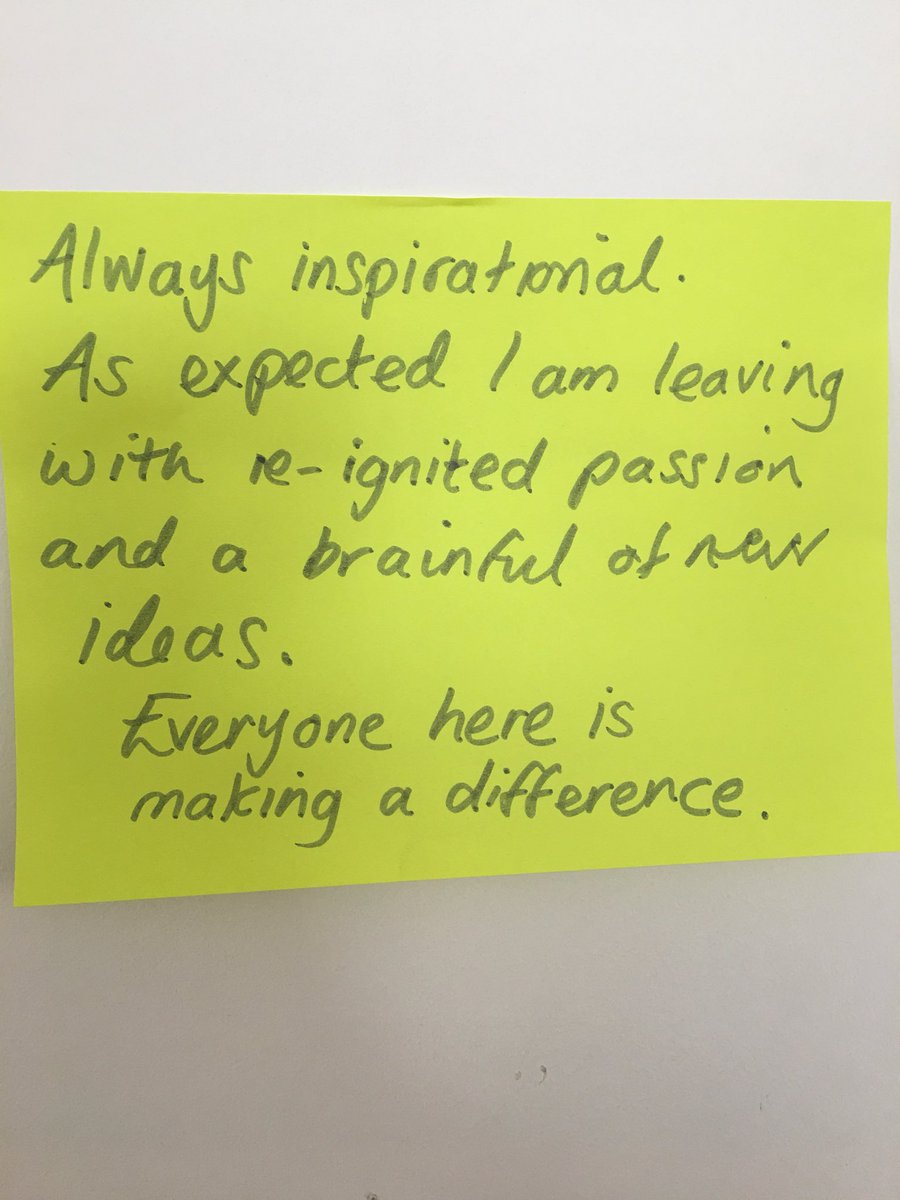 Always inspirational.
As expected I am leaving
with re-ignited passion
and a brainful of new
ideas.
Everyone here is
making a difference.